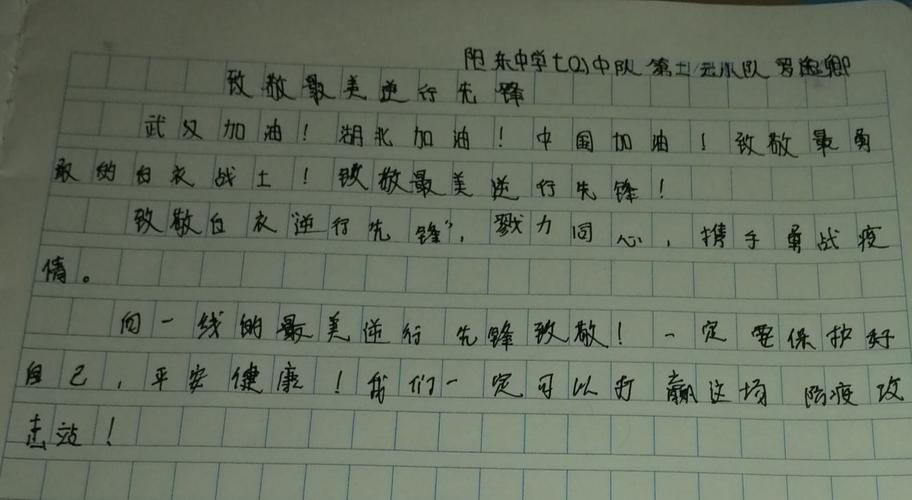 阳东中学七(2)中队 第十一云小队 罗逸卿
致敬最美逆行先锋
武汉加油！湖北加油！中国加油！致敬最勇
敢的白衣战士！致敬最美逆行先锋！
致敬白衣“逆行先锋”，戮力同心，携手勇战疫
情。
向一线的最美逆行先锋致敬！一定要保护好
自己，平安健康！我们一定可以打赢这场防疫攻
击站！